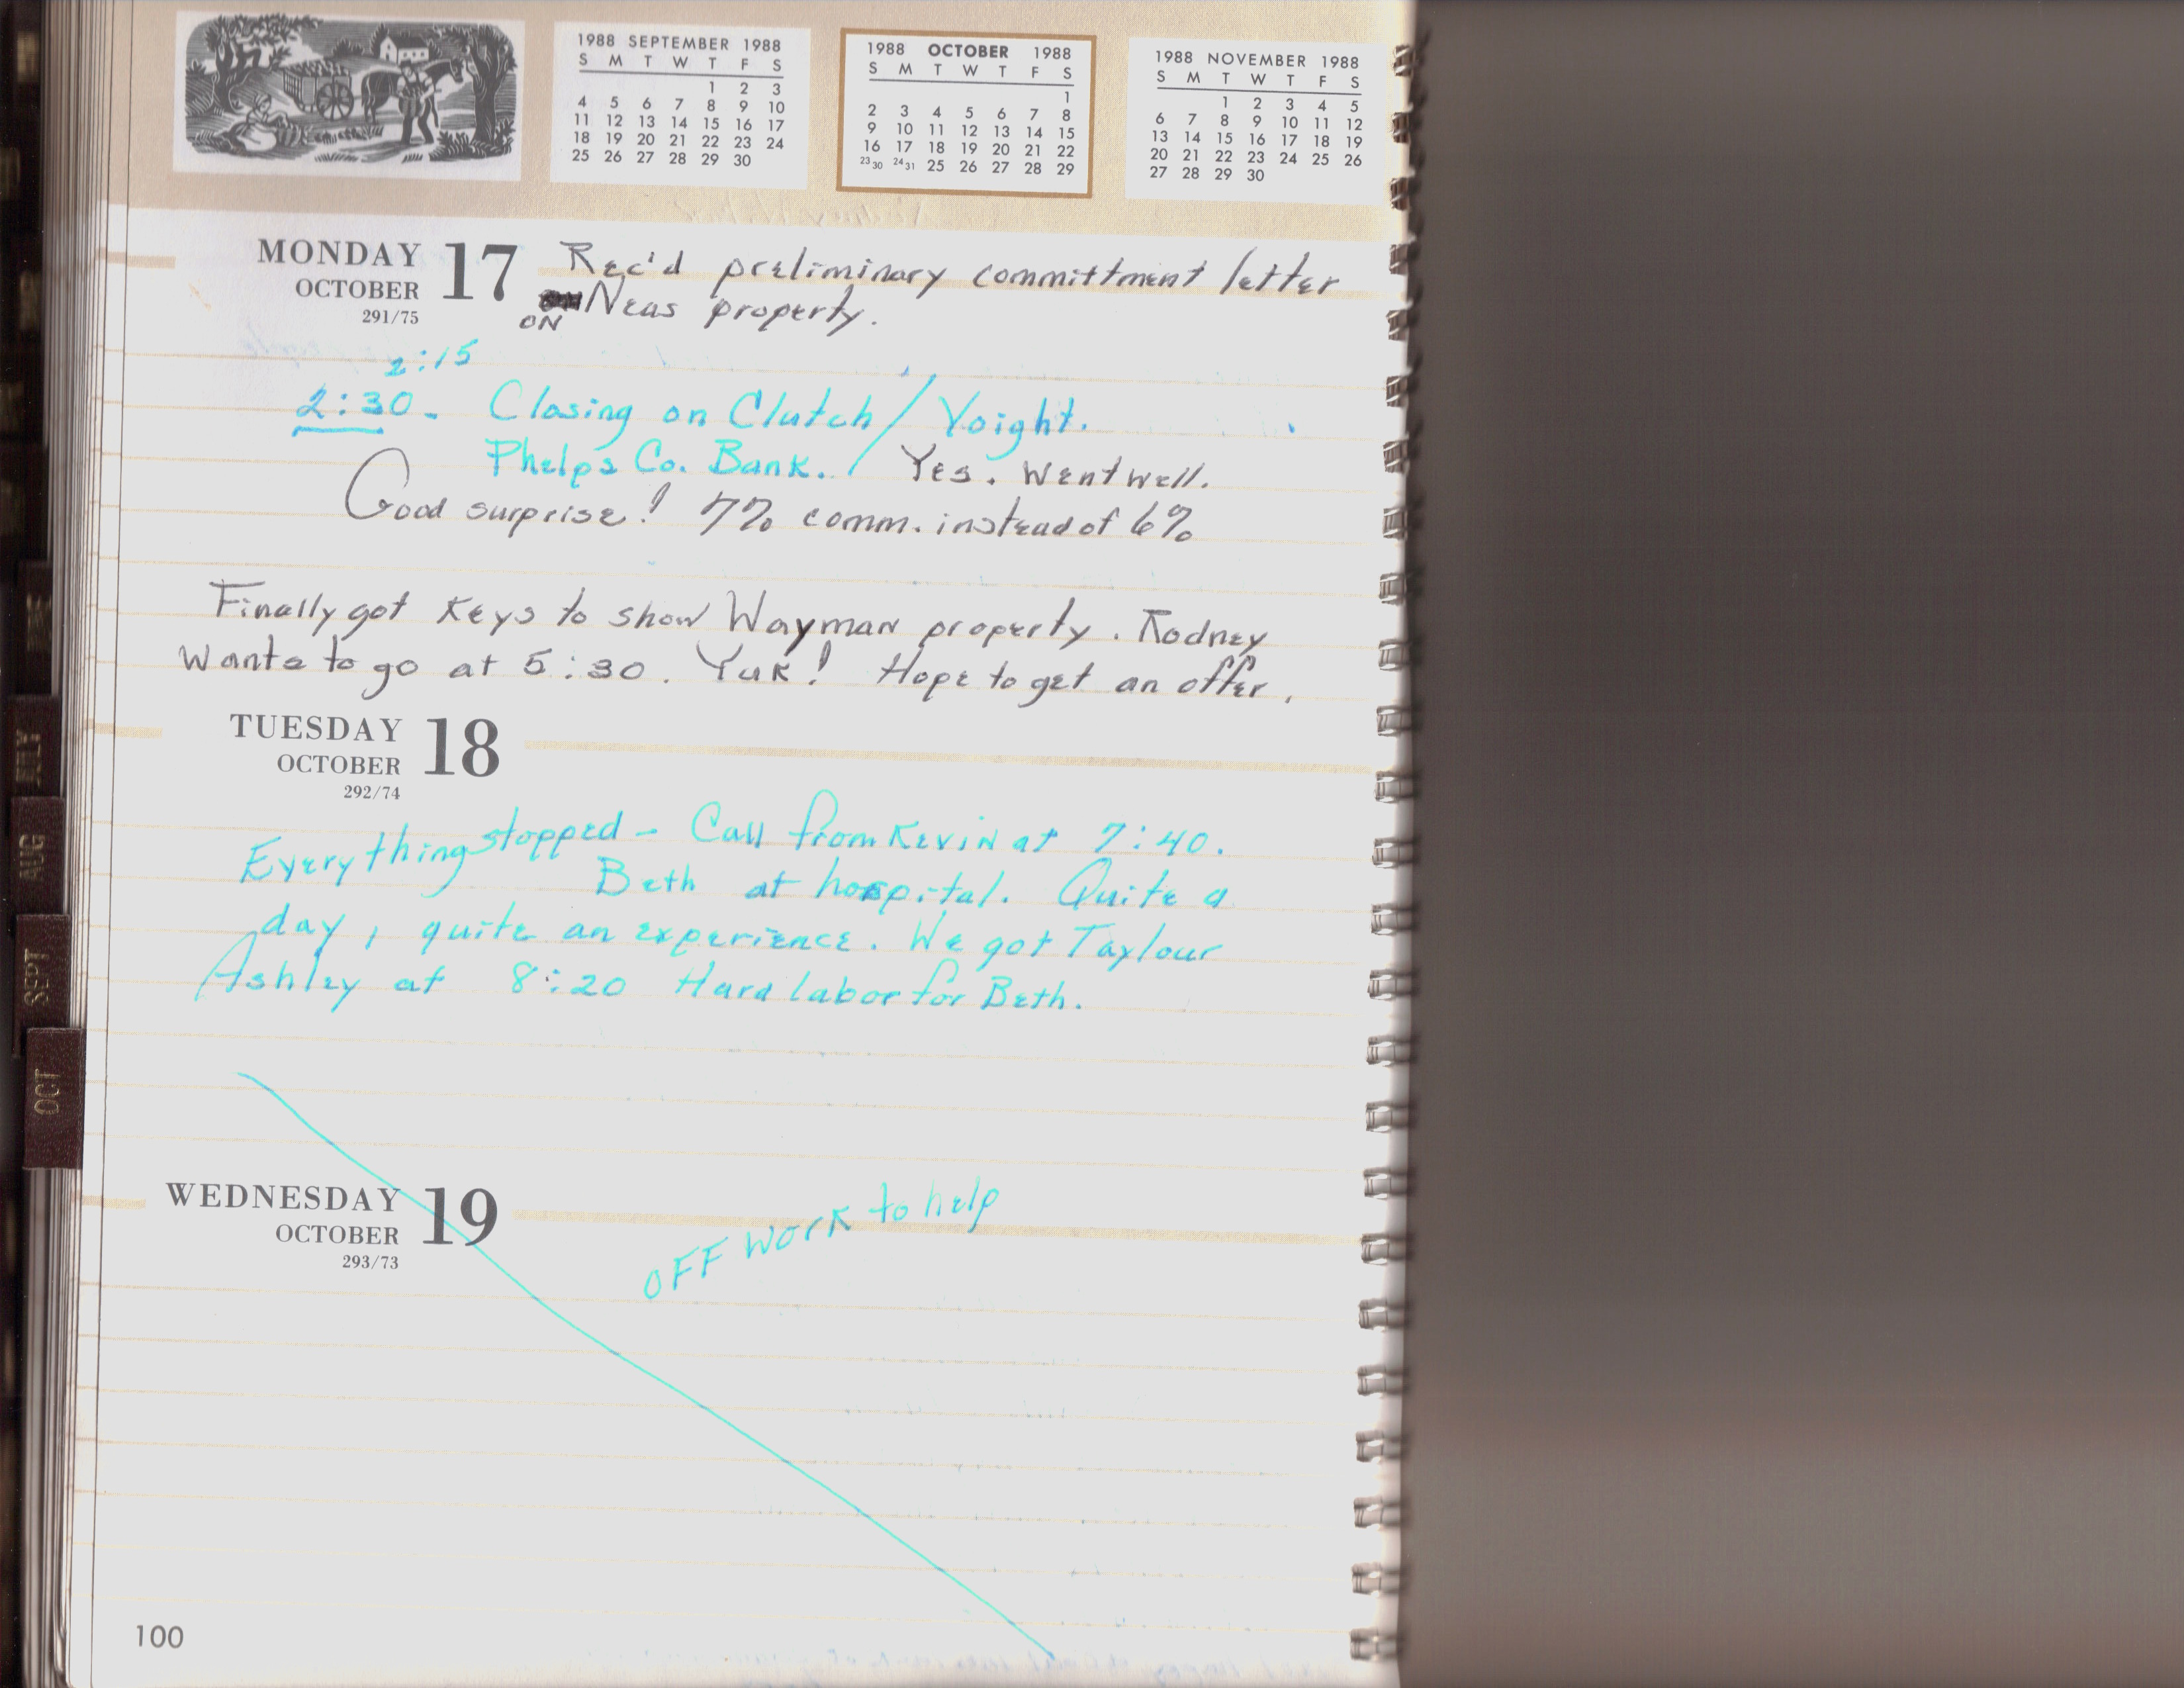 1988 SEPTEMBER 1988
S M T W T F S
1 2 3
4 5 6 7 8 9 10
11 12 13 14 15 16 17
18 19 20 21 22 23 24
25 26 27 28 29 30
1988 OCTOBER 1988
S M T W T F S
1
2 3 4 5 6 7 8
9 10 11 12 13 14 15
16 17 18 19 20 21 22
23 30 24 31 25 26 27 28 29
1988 NOVEMBER 1988
S M T W T F S
1 2 3 4 5
6 7 8 9 10 11 12
13 14 15 16 17 18 19
20 21 22 23 24 25 26
27 28 29 30
MONDAY 17
OCTOBER
291/75
Rec'd preliminary committment letter
ON Neas property.
2:15
2:30 - Closing on Clutch / Voight.
Phelps Co. Bank. / Yes. Went well.
Good surprise! 7% comm. instead of 6%
Finally got keys to show Wayman property. Rodney
wants to go at 5:30. Yuk! Hope to get an offer.
TUESDAY 18
OCTOBER
292/74
Everything stopped - Call from Kevin at 7:40.
Beth at hospital. Quite a
day, quite an experience. We got Taylour
Ashley at 8:20 Hard labor for Beth.
WEDNESDAY 19
OCTOBER
293/73
OFF WORK to help
100
JULY
AUG
SEPT
OCT